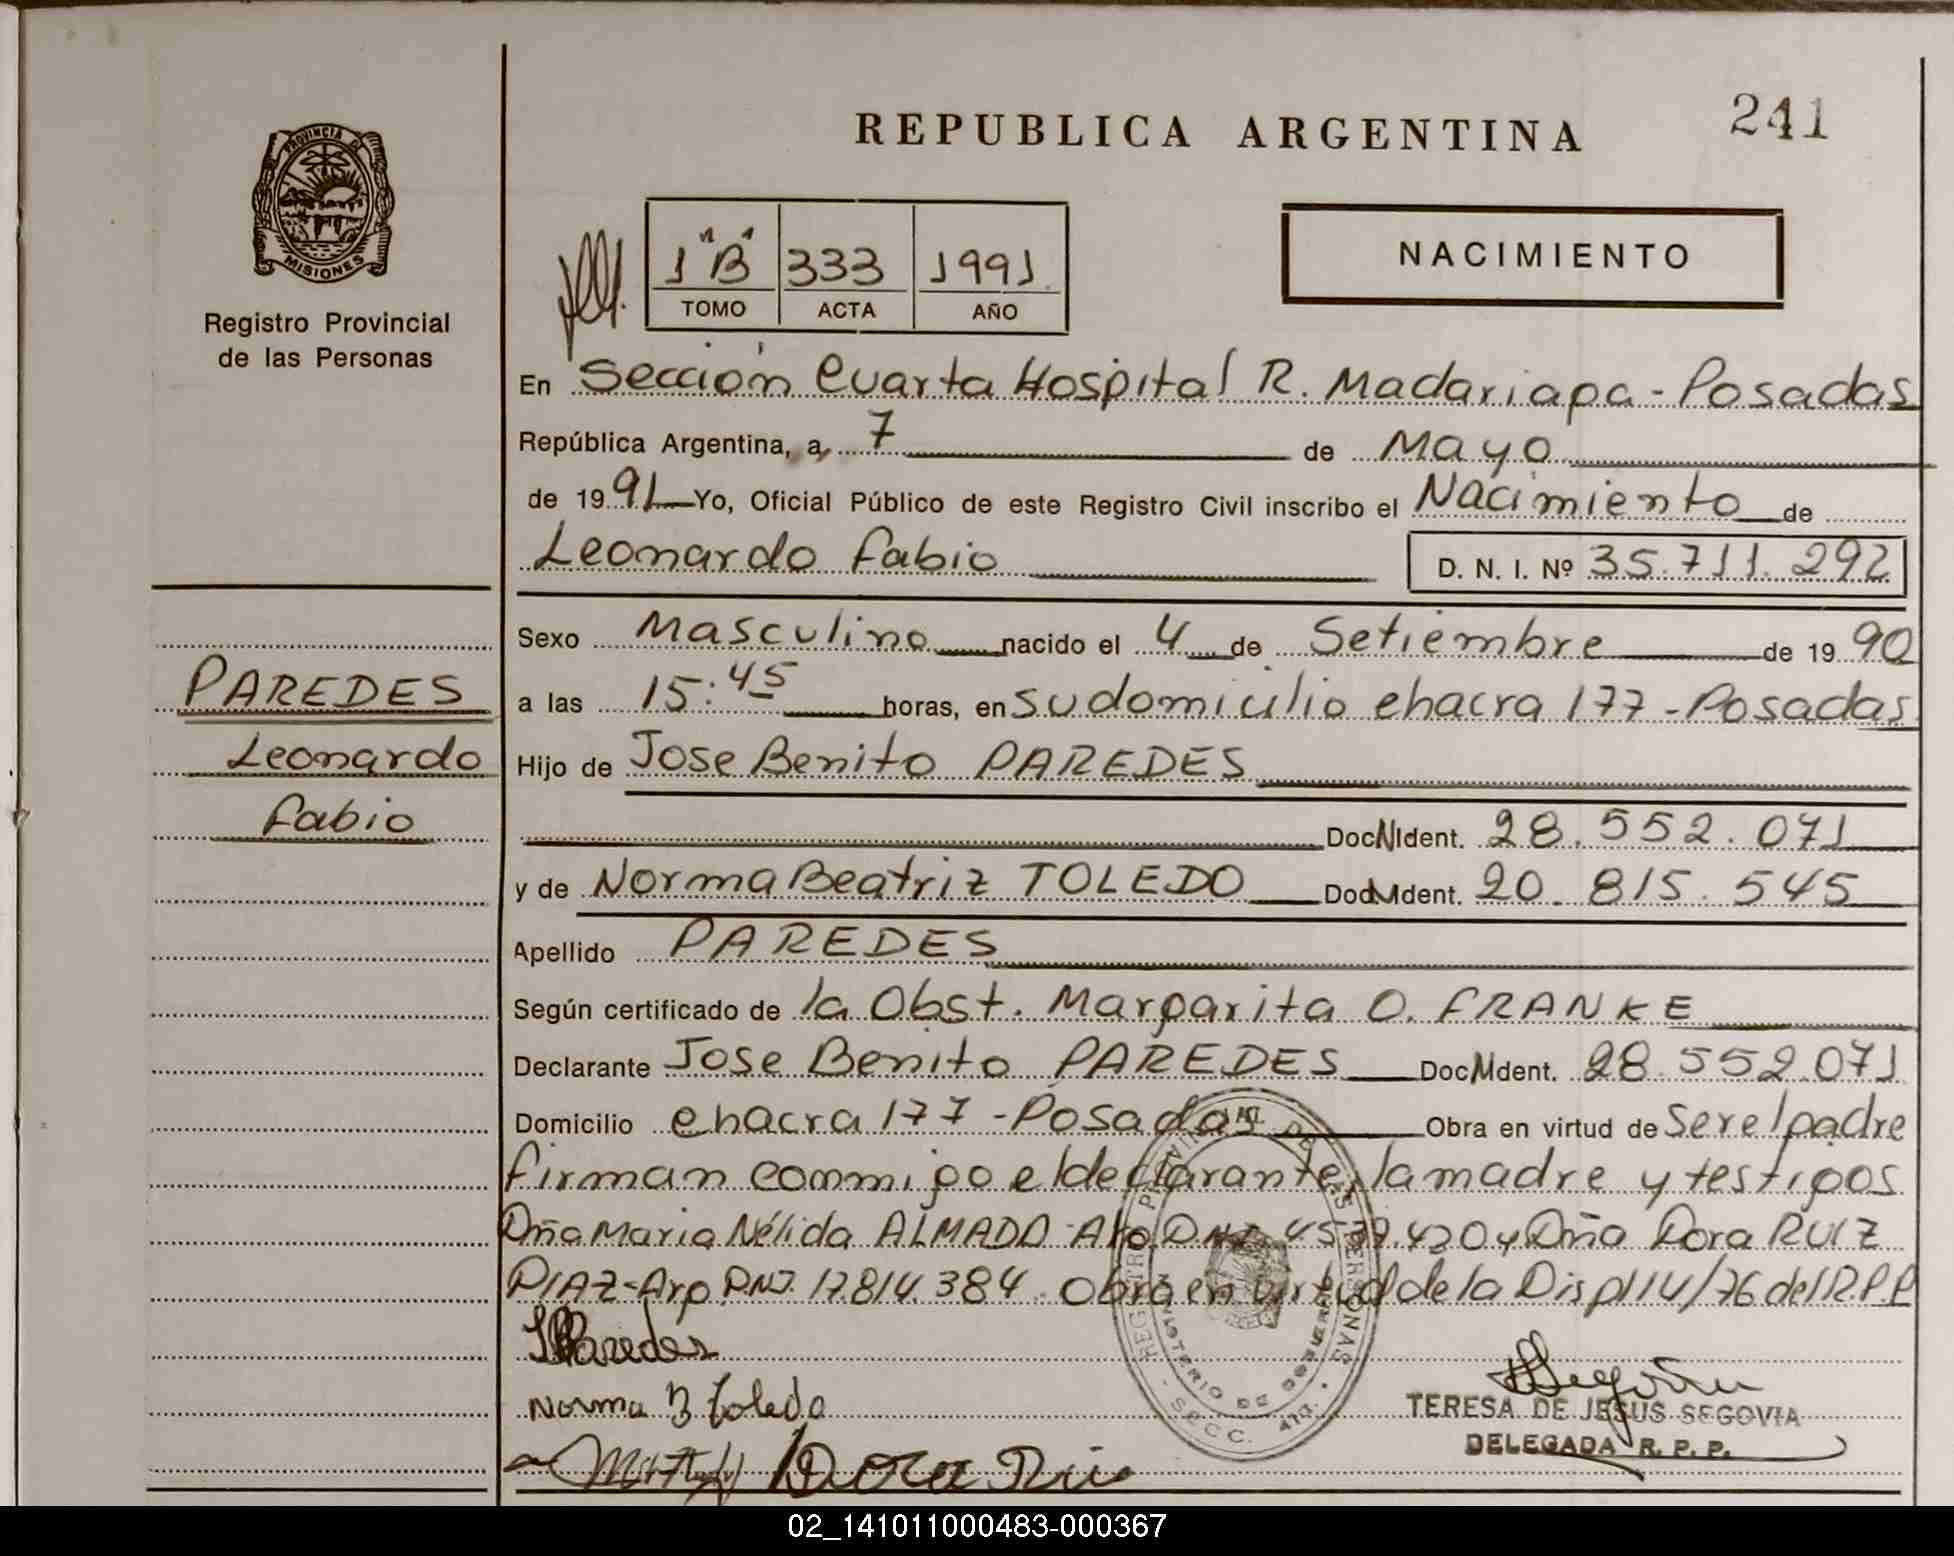 REPUBLICA ARGENTINA
241
PROVINCIA DE
MISIONES
Registro Provincial
de las Personas
1 "B" 333 1991
TOMO ACTA AÑO
NACIMIENTO
En Sección Cuarta Hospital R. Madariaga - Posadas
República Argentina, a 7 de Mayo
de 1991 Yo, Oficial Público de este Registro Civil inscribo el Nacimiento de
Leonardo Fabio D. N. I. Nº 35.711.292
Sexo Masculino nacido el 4 de Setiembre de 1990
PAREDES
Leonardo
Fabio
a las 15:45 horas, en su domicilio chacra 177 - Posadas
Hijo de Jose Benito PAREDES
Doc.N.Ident. 28.552.071
y de Norma Beatriz TOLEDO Doc.N.Ident. 20.815.545
Apellido PAREDES
Según certificado de la Obst. Margarita O. FRANKE
Declarante Jose Benito PAREDES Doc.N.Ident. 28.552.071
Domicilio chacra 177 - Posadas Obra en virtud de ser el padre
firman conmigo el declarante, la madre y testigos
Dña Maria Nélida ALMADA - Arg. D.N.I. y Dña Dora RUIZ
DIAZ - Arg. D.N.I. 17.814.384. Obra en virtud de la Disp 114/76 del R.P.P
Paredes
Norma B Toledo
Dora Ruiz
REGISTRO PROVINCIAL DE LAS PERSONAS
MINISTERIO DE GOBIERNO
SECC. 4ta.
TERESA DE JESUS SEGOVIA
DELEGADA R. P. P.
02_141011000483-000367